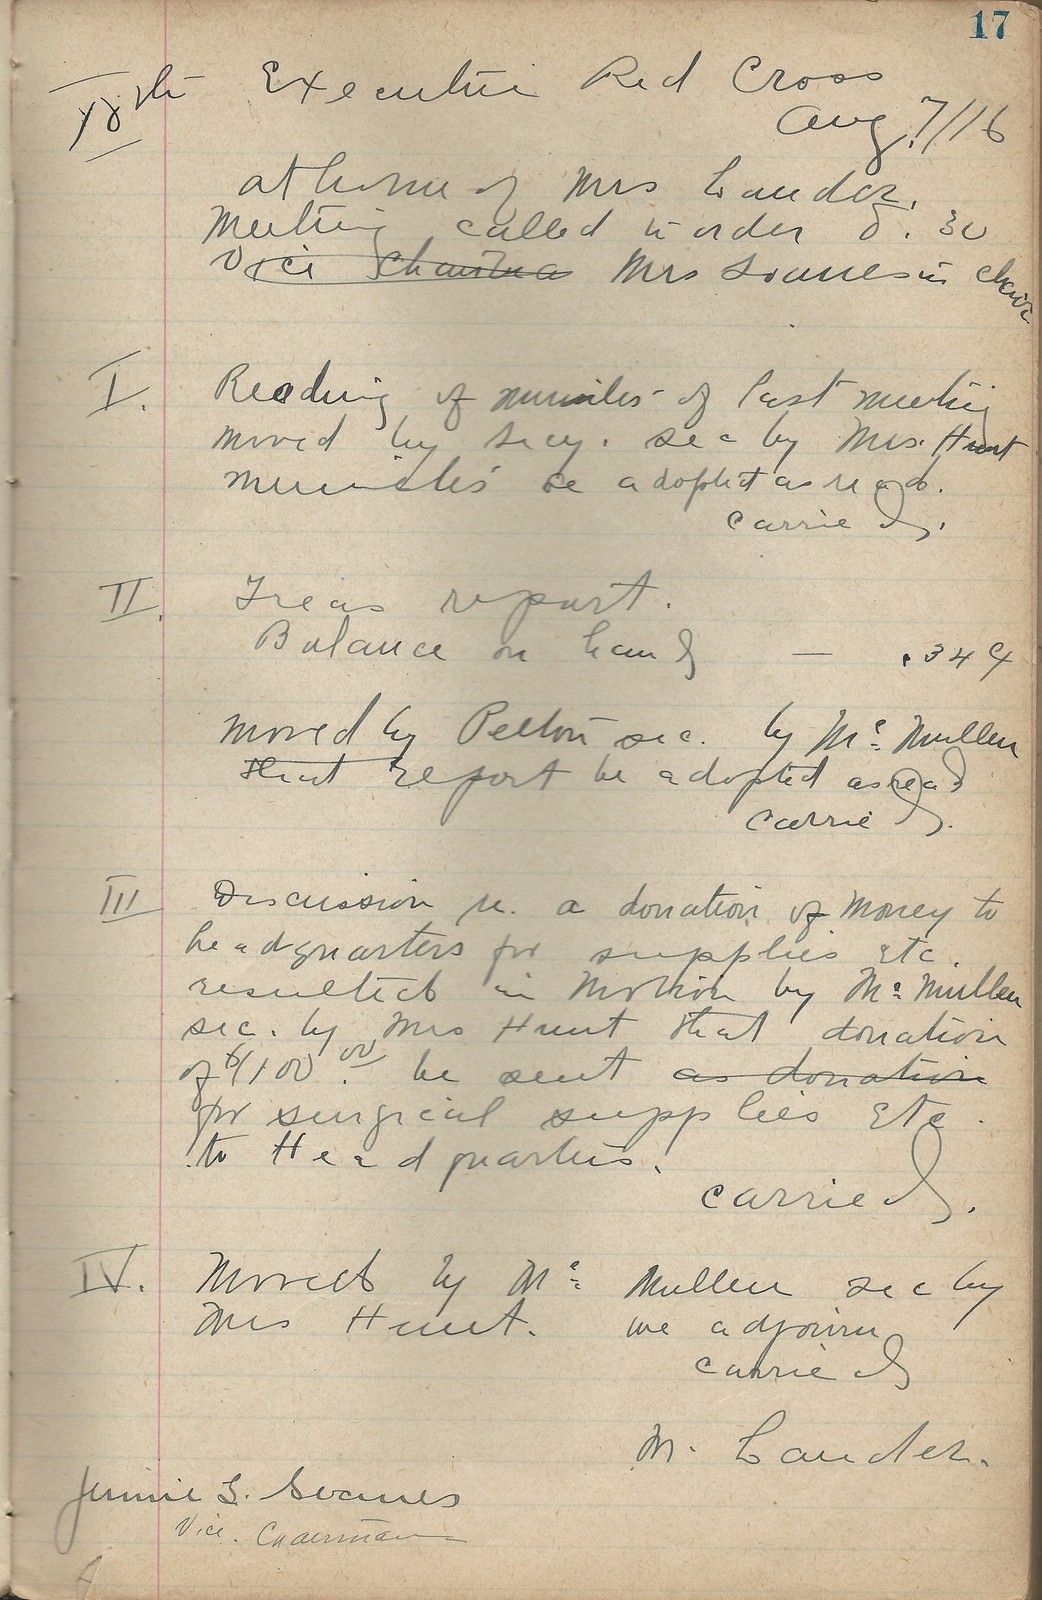 17
18th Executive Red Cross
Aug. 7/16
at home of Mrs Lander.
Meeting called to order 8.30
Vice Chairman Mrs Soanes in chair
I. Reading of minutes of last meeting
moved by Secy. sec by Mrs. Hunt
minutes be adopted as read.
carried.
II. Treas report.
Balance on hand — .349
moved by Pelton sec. by Mc Mullen
that report be adopted as read
carried.
III Discussion re. a donation of money to
headquarters for supplies etc.
resulted in Motion by Mc Mullen
sec. by Mrs Hunt that donation
of $100.00 be sent as donation
for surgical supplies etc.
to Headquarters.
carried.
IV. Moved by Mc Mullen sec by
Mrs Hunt. we adjourn
carried
M. Lander.
Jennie L. Soanes
Vice. Chairman